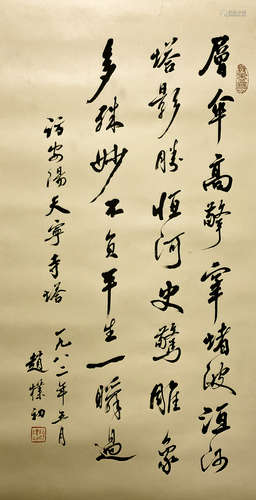 層傘高擎窣堵波洹河
塔影勝恒河史驚雕象
多殊妙不負平生一瞬過
訪安陽天寧寺塔
一九八二年五月
趙樸初